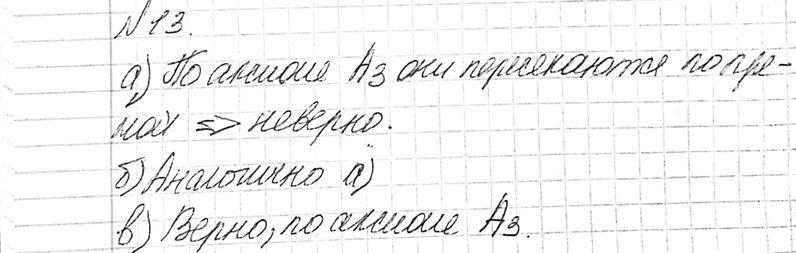 №13.
а) По аксиоме А3 они пересекаются по пря-
мой => неверно.
б) Аналогично а)
в) Верно, по аксиоме А3.